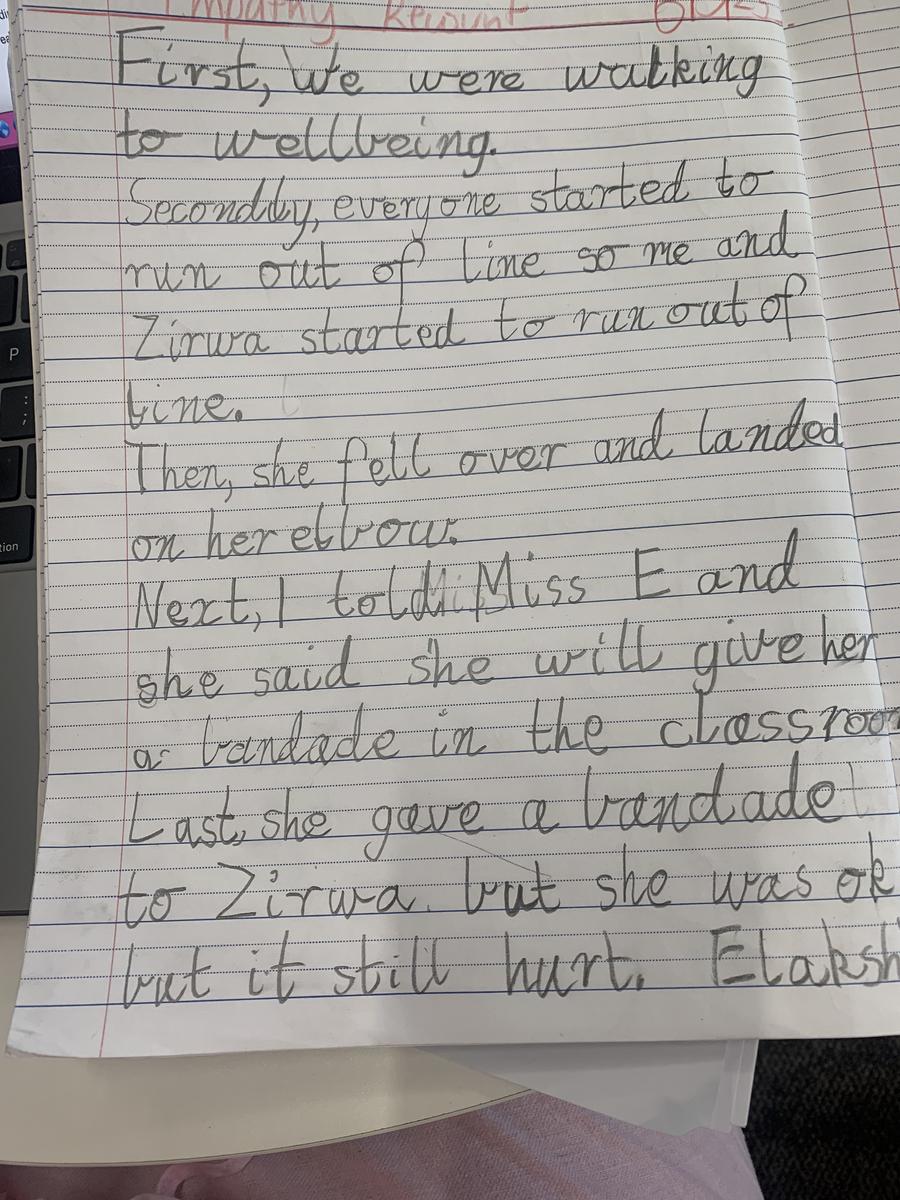 Empathy Recount
First, We were walking
to wellbeing.
Secondly, everyone started to
run out of line so me and
Zirwa started to run out of
line.
Then, she fell over and landed
on her elbow.
Next, I told Miss E and
she said she will give her
a bandade in the classroom
Last, she gave a bandade
to Zirwa. but she was ok
but it still hurt. Elaksh
P
tion